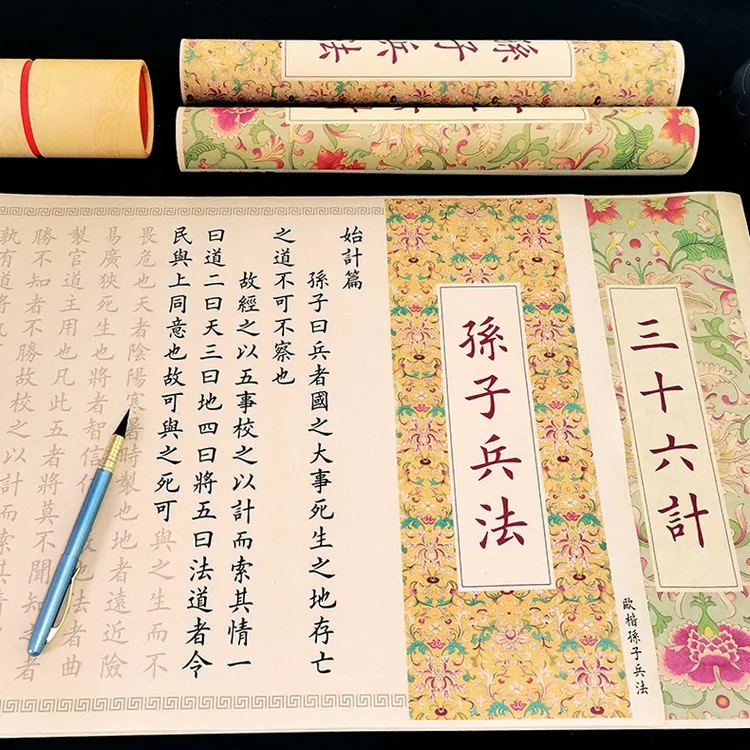 孫子兵法
三十六計
歐楷孫子兵法
孫子兵法
始計篇
孫子曰兵者國之大事死生之地存亡
之道不可不察也
故經之以五事校之以計而索其情一
曰道二曰天三曰地四曰將五曰法道者令
民與上同意也故可與之死可與之生而不
畏危也天者陰陽寒暑時製也地者遠近險
易廣狹死生也將者智信也法者曲
製官道主用也凡此五者將莫不聞知之者
勝不知者不勝故校之以計而索其情
孰有道將